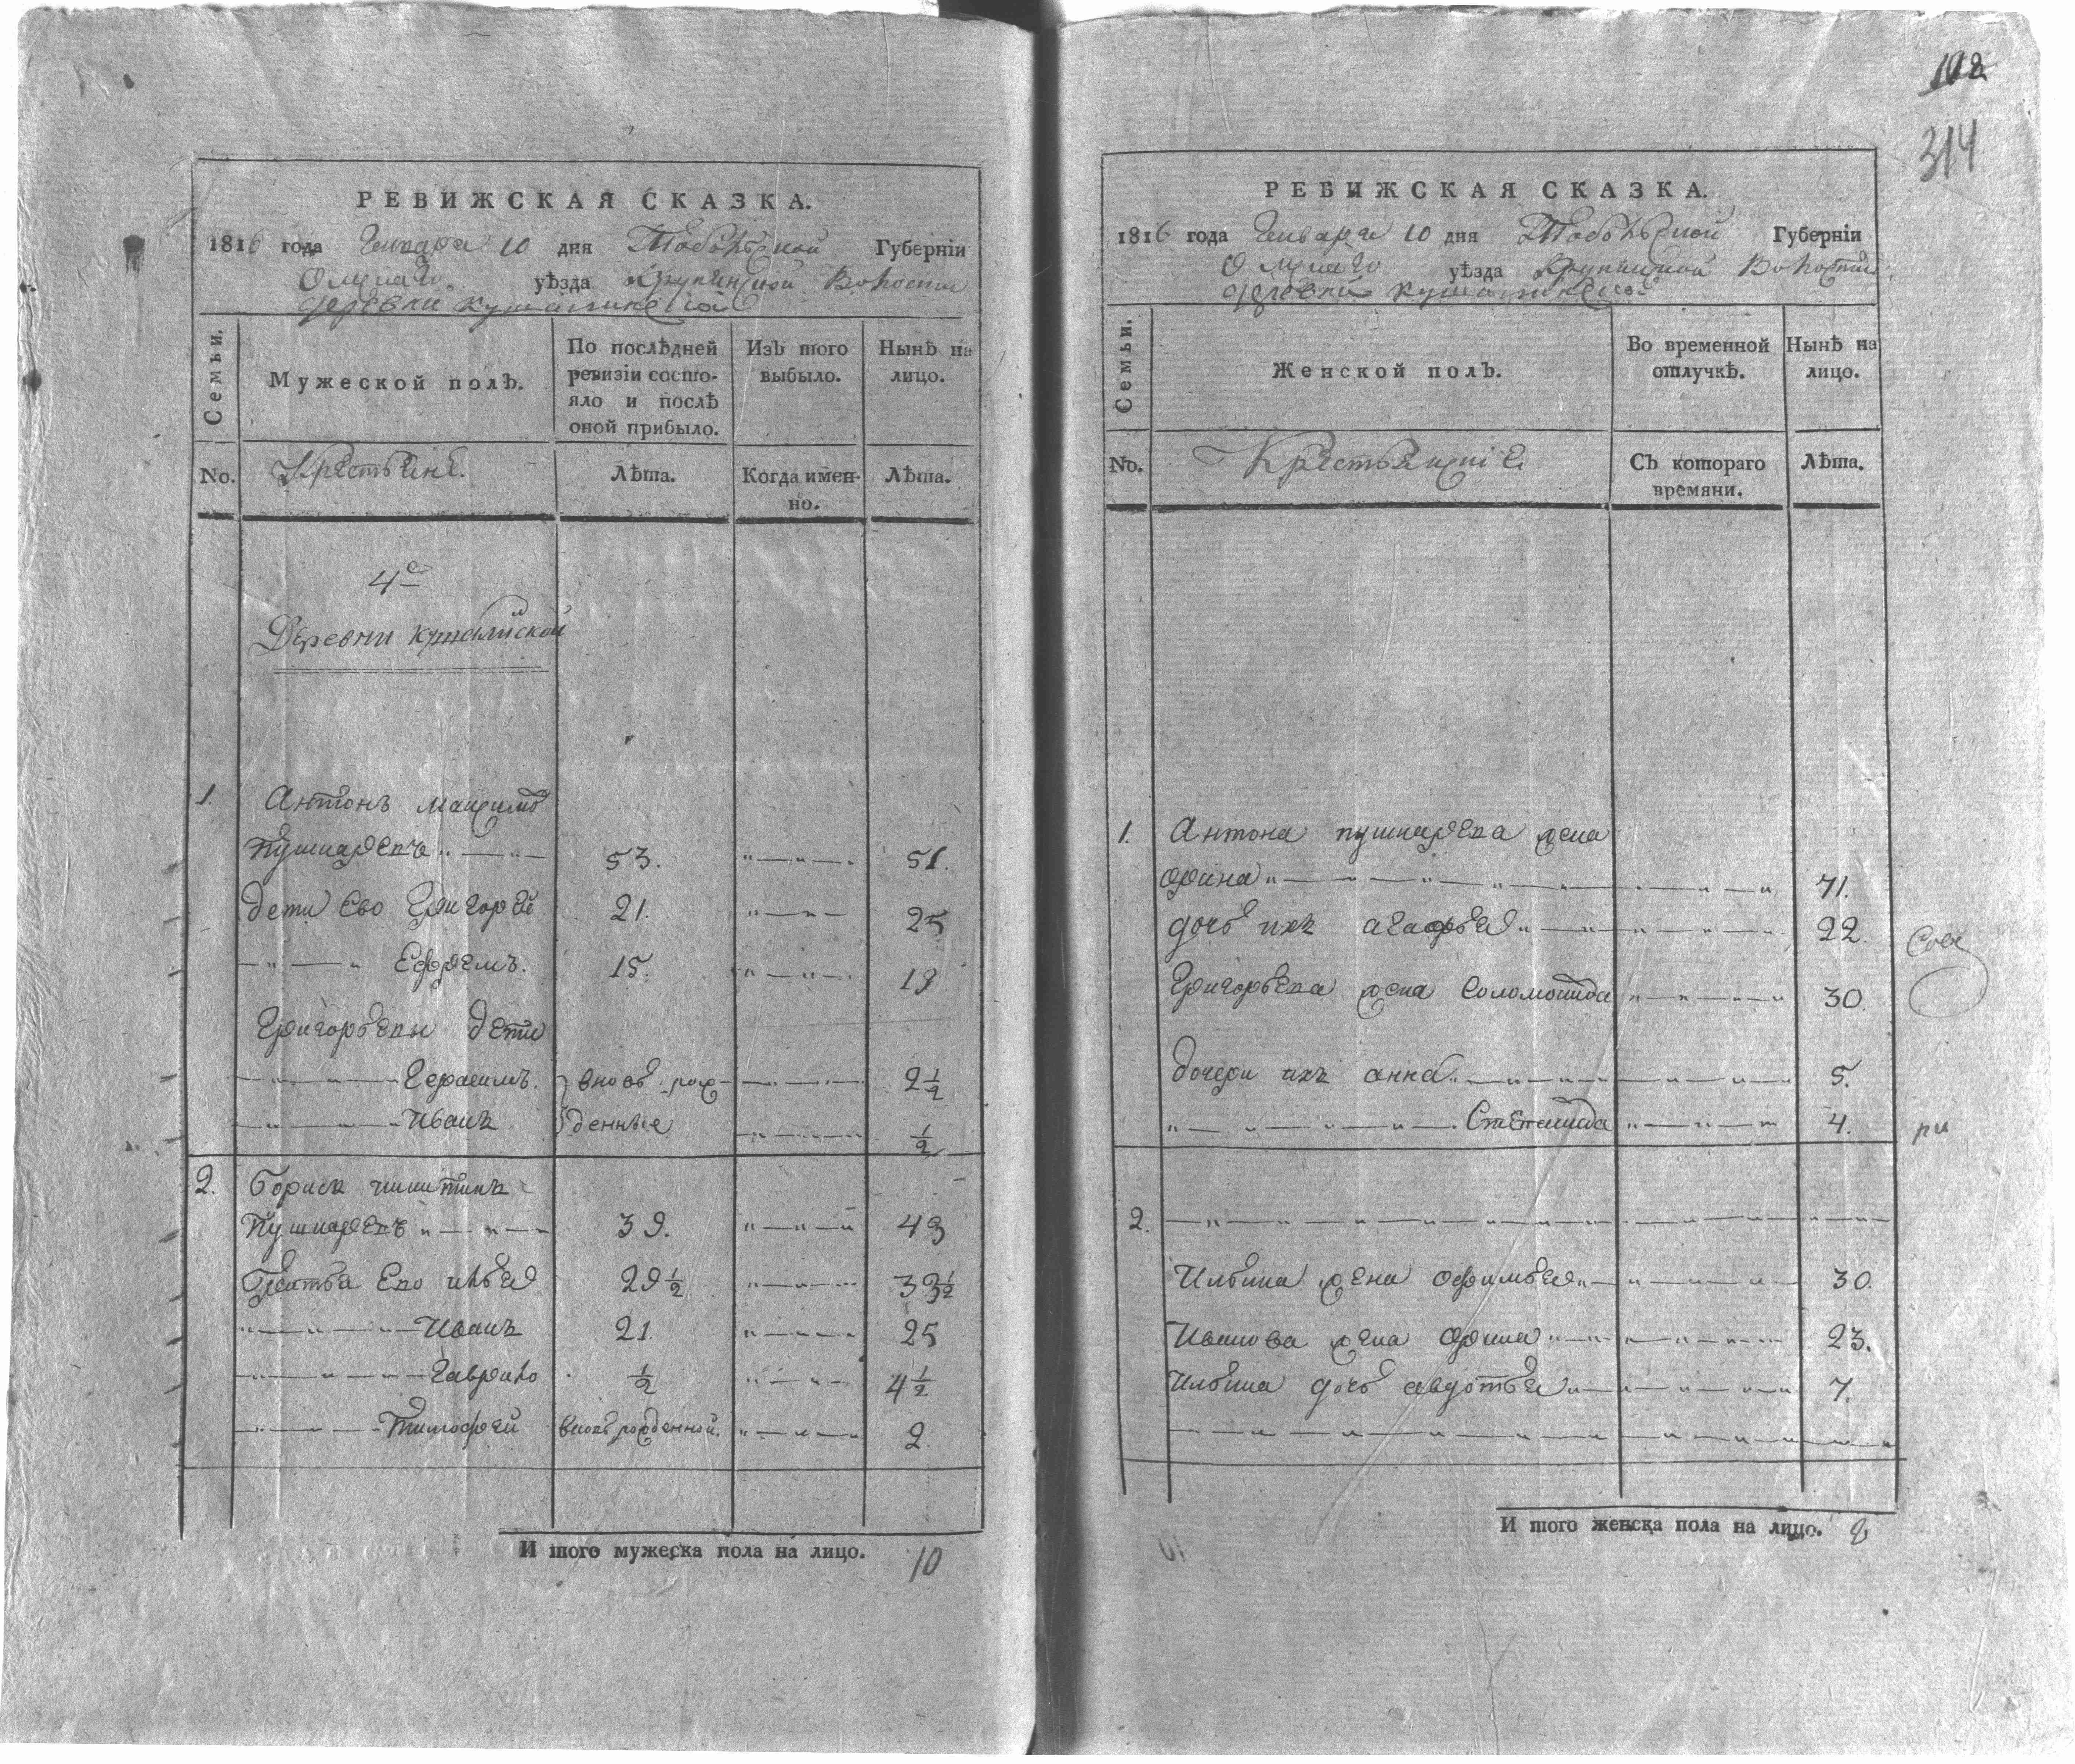 108
314
РЕВИЖСКАЯ СКАЗКА.
1816 года Генваря 10 дня Тобольской Губерніи
Омскаго уѣзда Крупинской Волости
деревни
Семьи.
Мужеской полъ.
По послѣдней ревизіи состо-
яло и послѣ
оной прибыло.
Изъ того
выбыло.
Нынѣ на
лицо.
No.
Крестьяне.
Лѣта.
Когда имен-
но.
Лѣта.
4е
Деревни
1. Антонъ Максимов
Пушкаревъ 53. 51.
дети Ево Григорей 21. 25
Ефремъ. 15. 19
Григорьевы дети
Герасимъ. вновь рож- 2 1/2
Иванъ денные 1/2
2. Борисъ Никитинъ
Пушкаревъ 39. 43
Братья Ево Илья 29 1/2 33 1/2
Иванъ 21. 25
Гаврило 1/2 4 1/2
Тимофей вновь рожденной. 2.
И того мужеска пола на лицо. 10
РЕВИЖСКАЯ СКАЗКА.
1816 года Генваря 10 дня Тобольской Губерніи
Омскаго уѣзда Крупинской Волости
деревни
Семьи.
Женской полъ.
Во временной
отлучкѣ.
Нынѣ на
лицо.
No.
Съ котораго
времяни.
Лѣта.
1. Антона Пушкарева жена
Орина 41.
дочь ихъ Агафья 22.
Григорьева жена Соломонида 30.
дочери ихъ Анна 5.
Степанида 4.
2.
Ильина жена Офимья 30.
Иванова жена Орина 23.
Ильина дочь Авдотья 7.
И того женска пола на лицо. 8